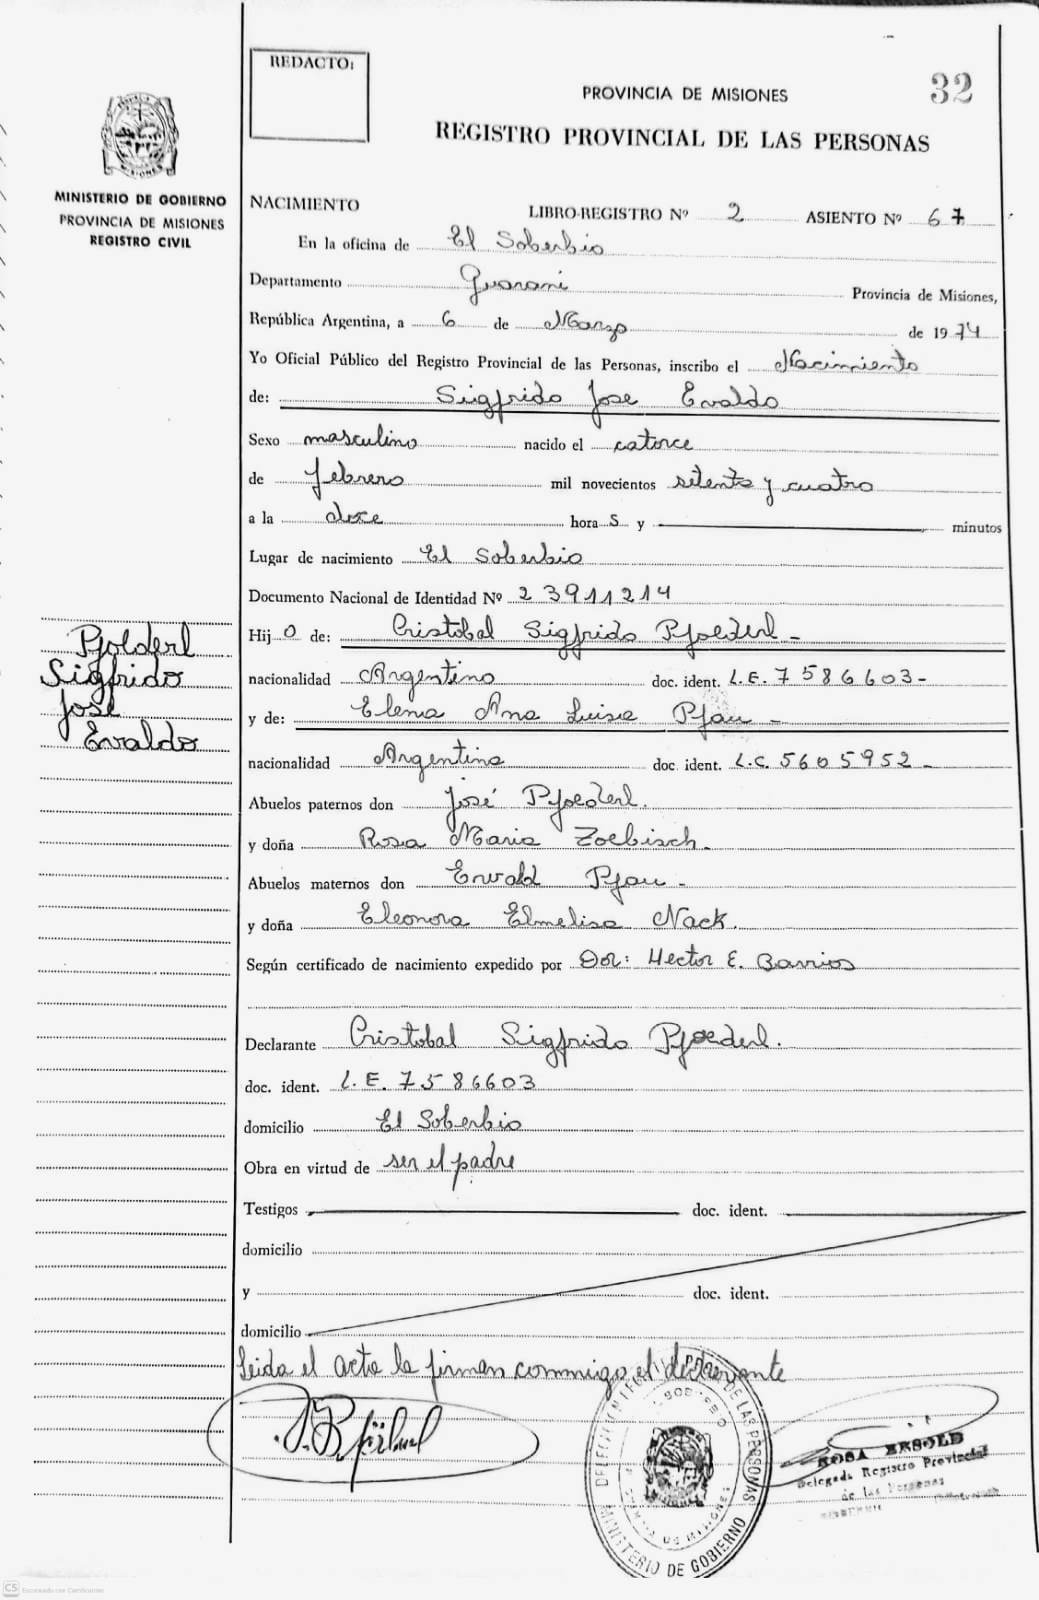 REDACTO:
32
PROVINCIA DE MISIONES
REGISTRO PROVINCIAL DE LAS PERSONAS
MINISTERIO DE GOBIERNO
PROVINCIA DE MISIONES
REGISTRO CIVIL
NACIMIENTO LIBRO-REGISTRO Nº 2 ASIENTO Nº 67
En la oficina de El Soberbio
Departamento Guarani Provincia de Misiones,
República Argentina, a 6 de Marzo de 1974
Yo Oficial Público del Registro Provincial de las Personas, inscribo el Nacimiento
de: Sigfrido Jose Evaldo
Sexo masculino nacido el catorce
de febrero mil novecientos setenta y cuatro
a la doce hora S y minutos
Lugar de nacimiento El Soberbio
Documento Nacional de Identidad Nº 23911214
Hij o de: Cristobal Sigfrido Pfoederl -
nacionalidad Argentino doc. ident. L.E. 7586603-
y de: Elena Ana Luisa Pfau -
nacionalidad Argentina doc. ident. L.C. 5605952-
Abuelos paternos don José Pfoederl.
y doña Rosa Maria Zoebisch.
Abuelos maternos don Erwald Pfau -
y doña Eleonora Elmelisa Nack.
Según certificado de nacimiento expedido por Dor: Hector E. Barrios
Declarante Cristobal Sigfrido Pfoederl.
doc. ident. L.E. 7586603
domicilio El Soberbio
Obra en virtud de ser el padre
Testigos doc. ident.
domicilio
y doc. ident.
domicilio
Leida el acta la firman conmigo el declarante
Pfolderl
Sigfrido
José
Evaldo
DE LAS PERSONAS
MINISTERIO DE GOBIERNO
ROSA BESOLD
Delegada Registro Provincial
de las Personas
CS Escaneado con CamScanner